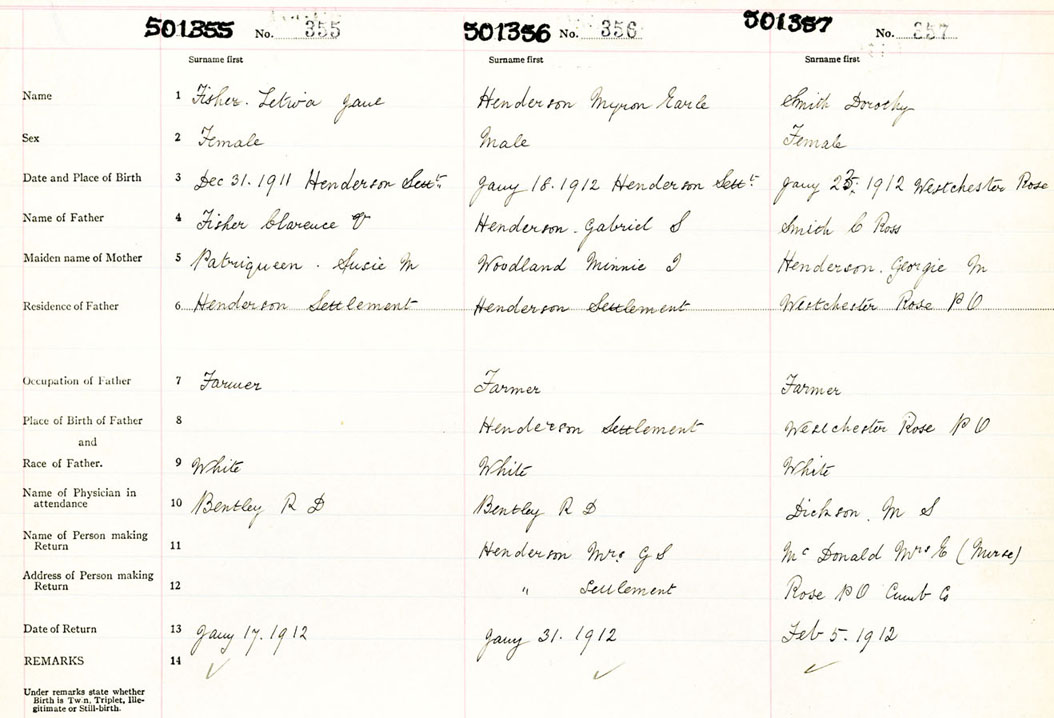 501355 No. 355 501356 No. 356 501357 No. 357
Surname first Surname first Surname first
Name 1 Fisher. Jane Henderson Myron Earle Smith Dorothy
Sex 2 Female Male Female
Date and Place of Birth 3 Dec 31. 1911 Henderson Settt. Jany 18. 1912 Henderson Settt. Jany 1912 Westchester Rose
Name of Father 4 Fisher Clarence Henderson. Gabriel S Smith C Ross
Maiden name of Mother 5 Patriqueen. Susie M Woodland Minnie Henderson. Georgie M
Residence of Father 6 Henderson Settlement Henderson Settlement Westchester Rose P O
Occupation of Father 7 Farmer Farmer Farmer
Place of Birth of Father 8 Henderson Settlement Westchester Rose P O
and
Race of Father. 9 White White White
Name of Physician in
attendance 10 Bentley R D Bentley R D Dickson. M S
Name of Person making
Return 11 Henderson Mrs. G S Mc Donald Mrs E (Nurse)
Address of Person making
Return 12 " Settlement Rose P O Cumb Co
Date of Return 13 Jany 17. 1912 Jany 31. 1912 Feb 5. 1912
REMARKS 14
Under remarks state whether
Birth is Twin, Triplet, Ille-
gitimate or Still-birth.